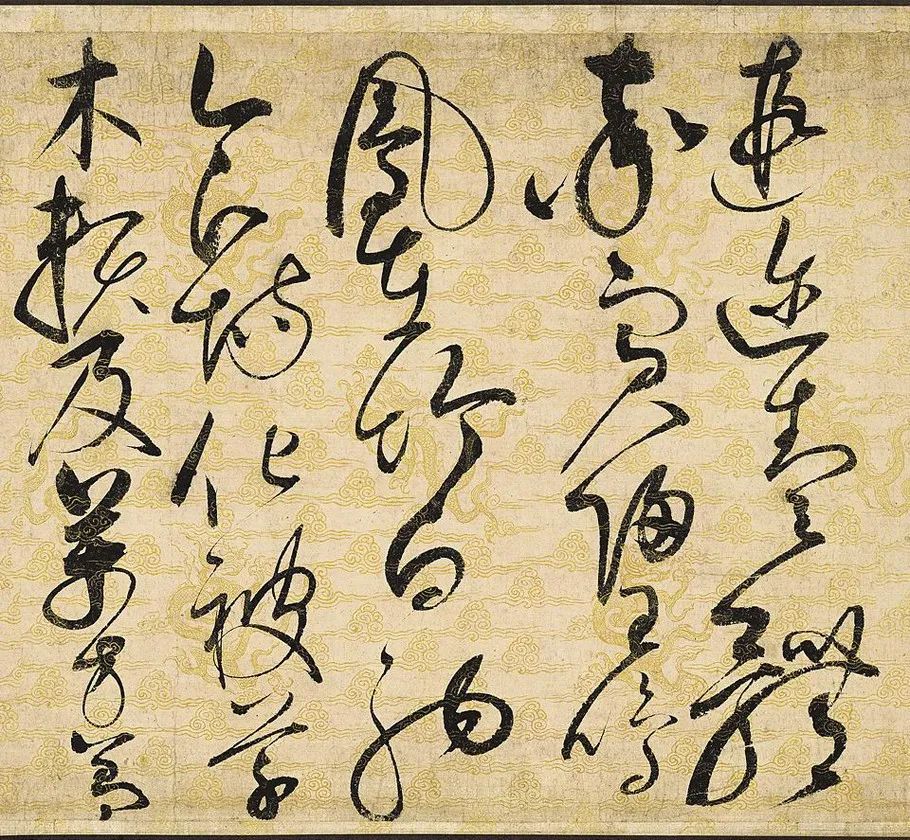 遐邇壹體
率賓歸王鳴
鳳在竹白駒
食場化被草
木賴及萬方蓋